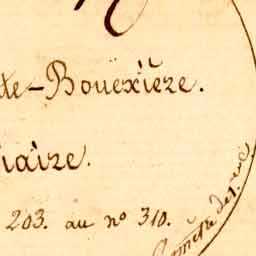 te-Bouëxière.
iaire.
203. au nº 310.